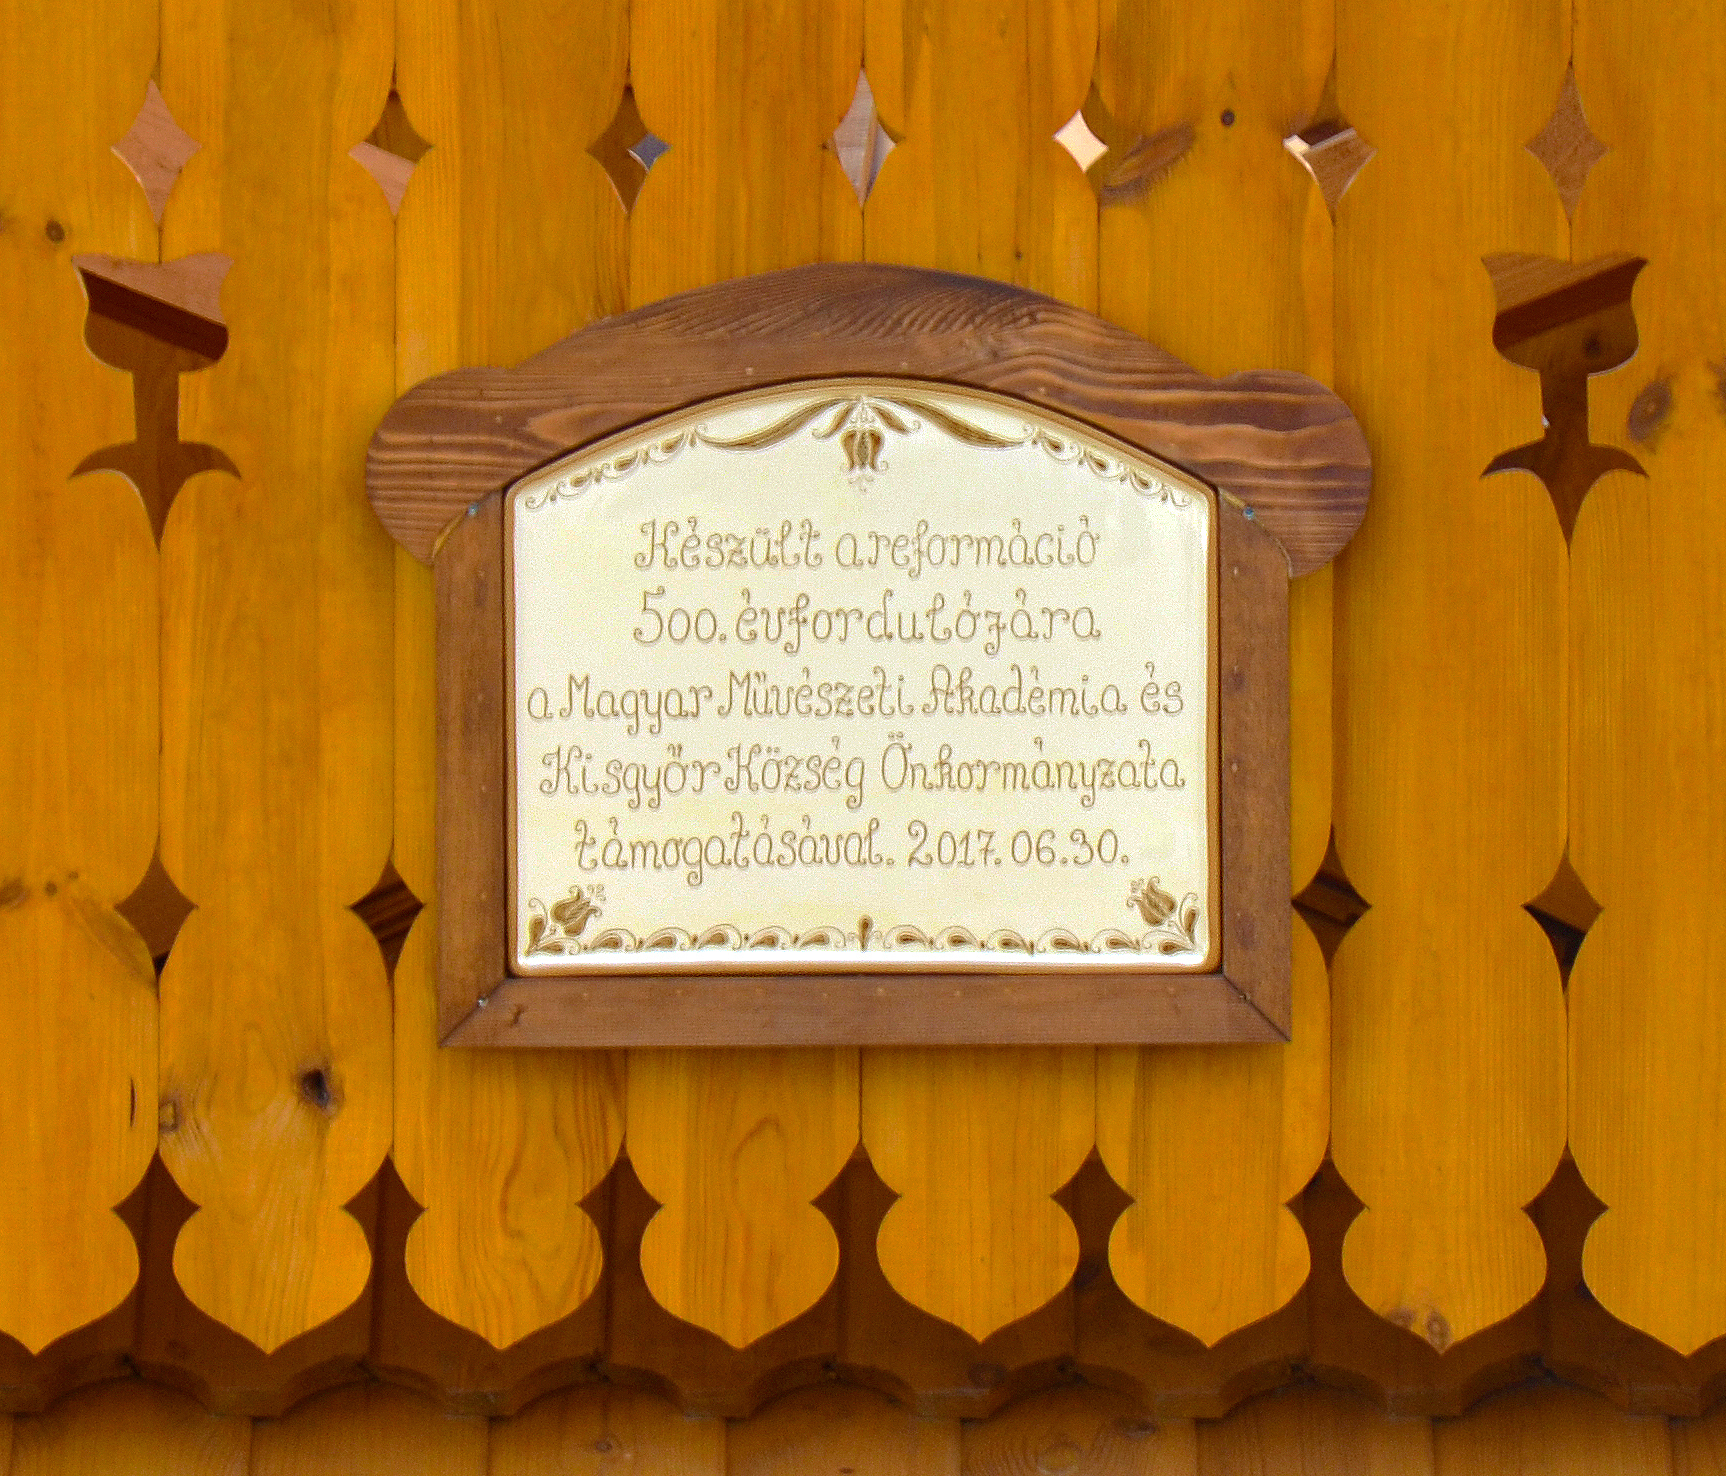 Készült a reformáció
500. évfordulójára
a Magyar Művészeti Akadémia és
Kisgyőr Község Önkormányzata
támogatásával. 2017.06.30.